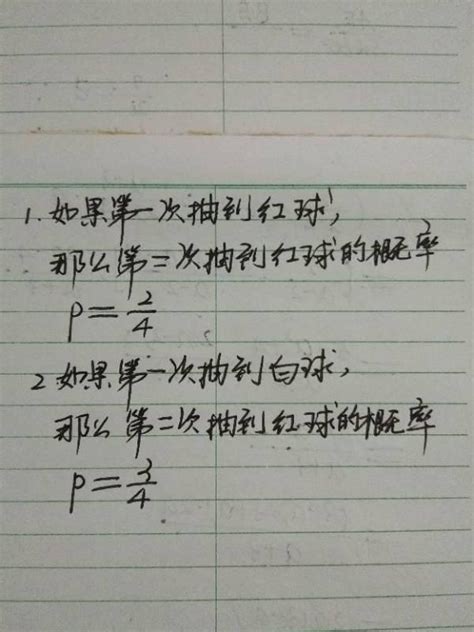 1. 如果第一次抽到红球,
那么第二次抽到红球的概率
P=2/4
2 如果第一次抽到白球,
那么第二次抽到红球的概率
P=3/4